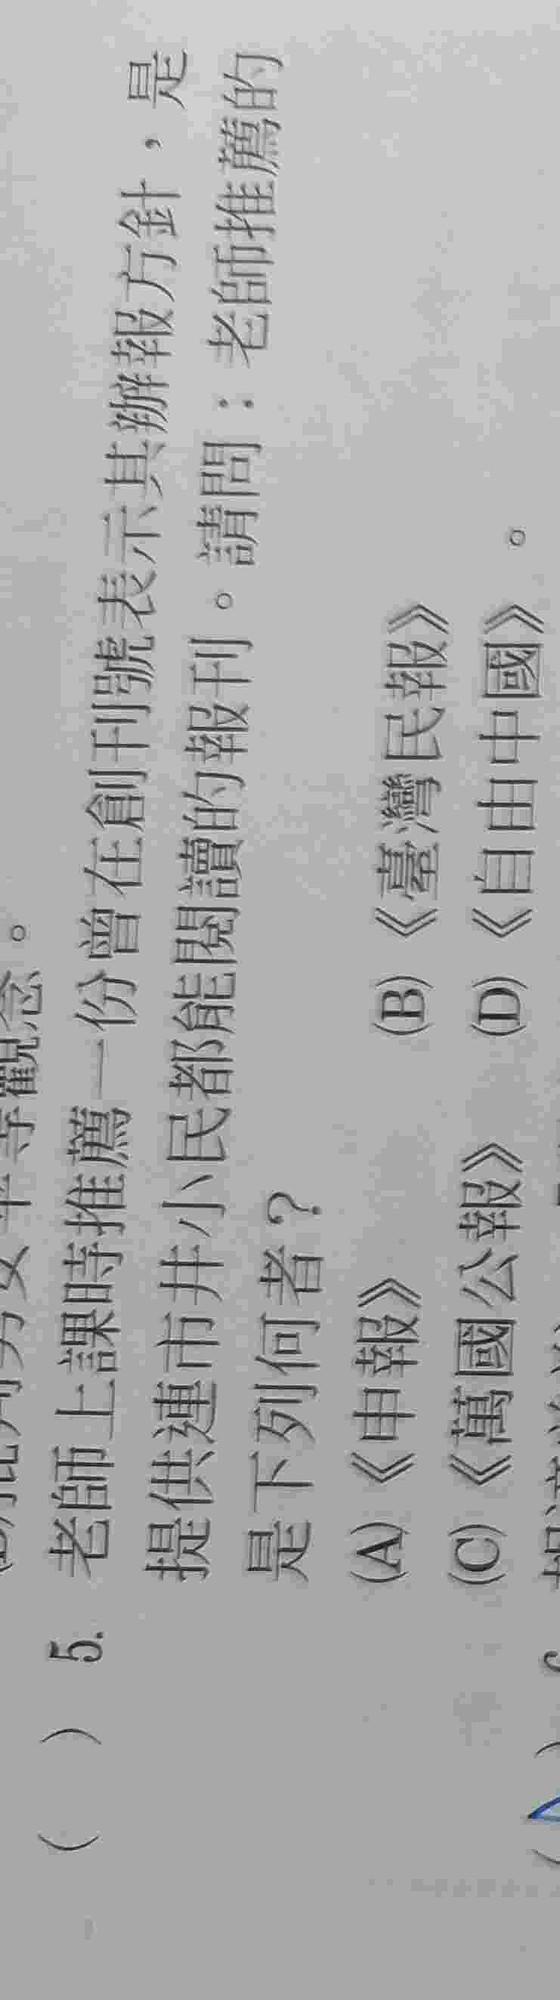 等觀念。
( ) 5. 老師上課時推薦一份曾在創刊號表示其辦報方針，是
提供連市井小民都能閱讀的報刊。請問：老師推薦的
是下列何者？
(A)《申報》 (B)《臺灣民報》
(C)《萬國公報》 (D)《自由中國》。